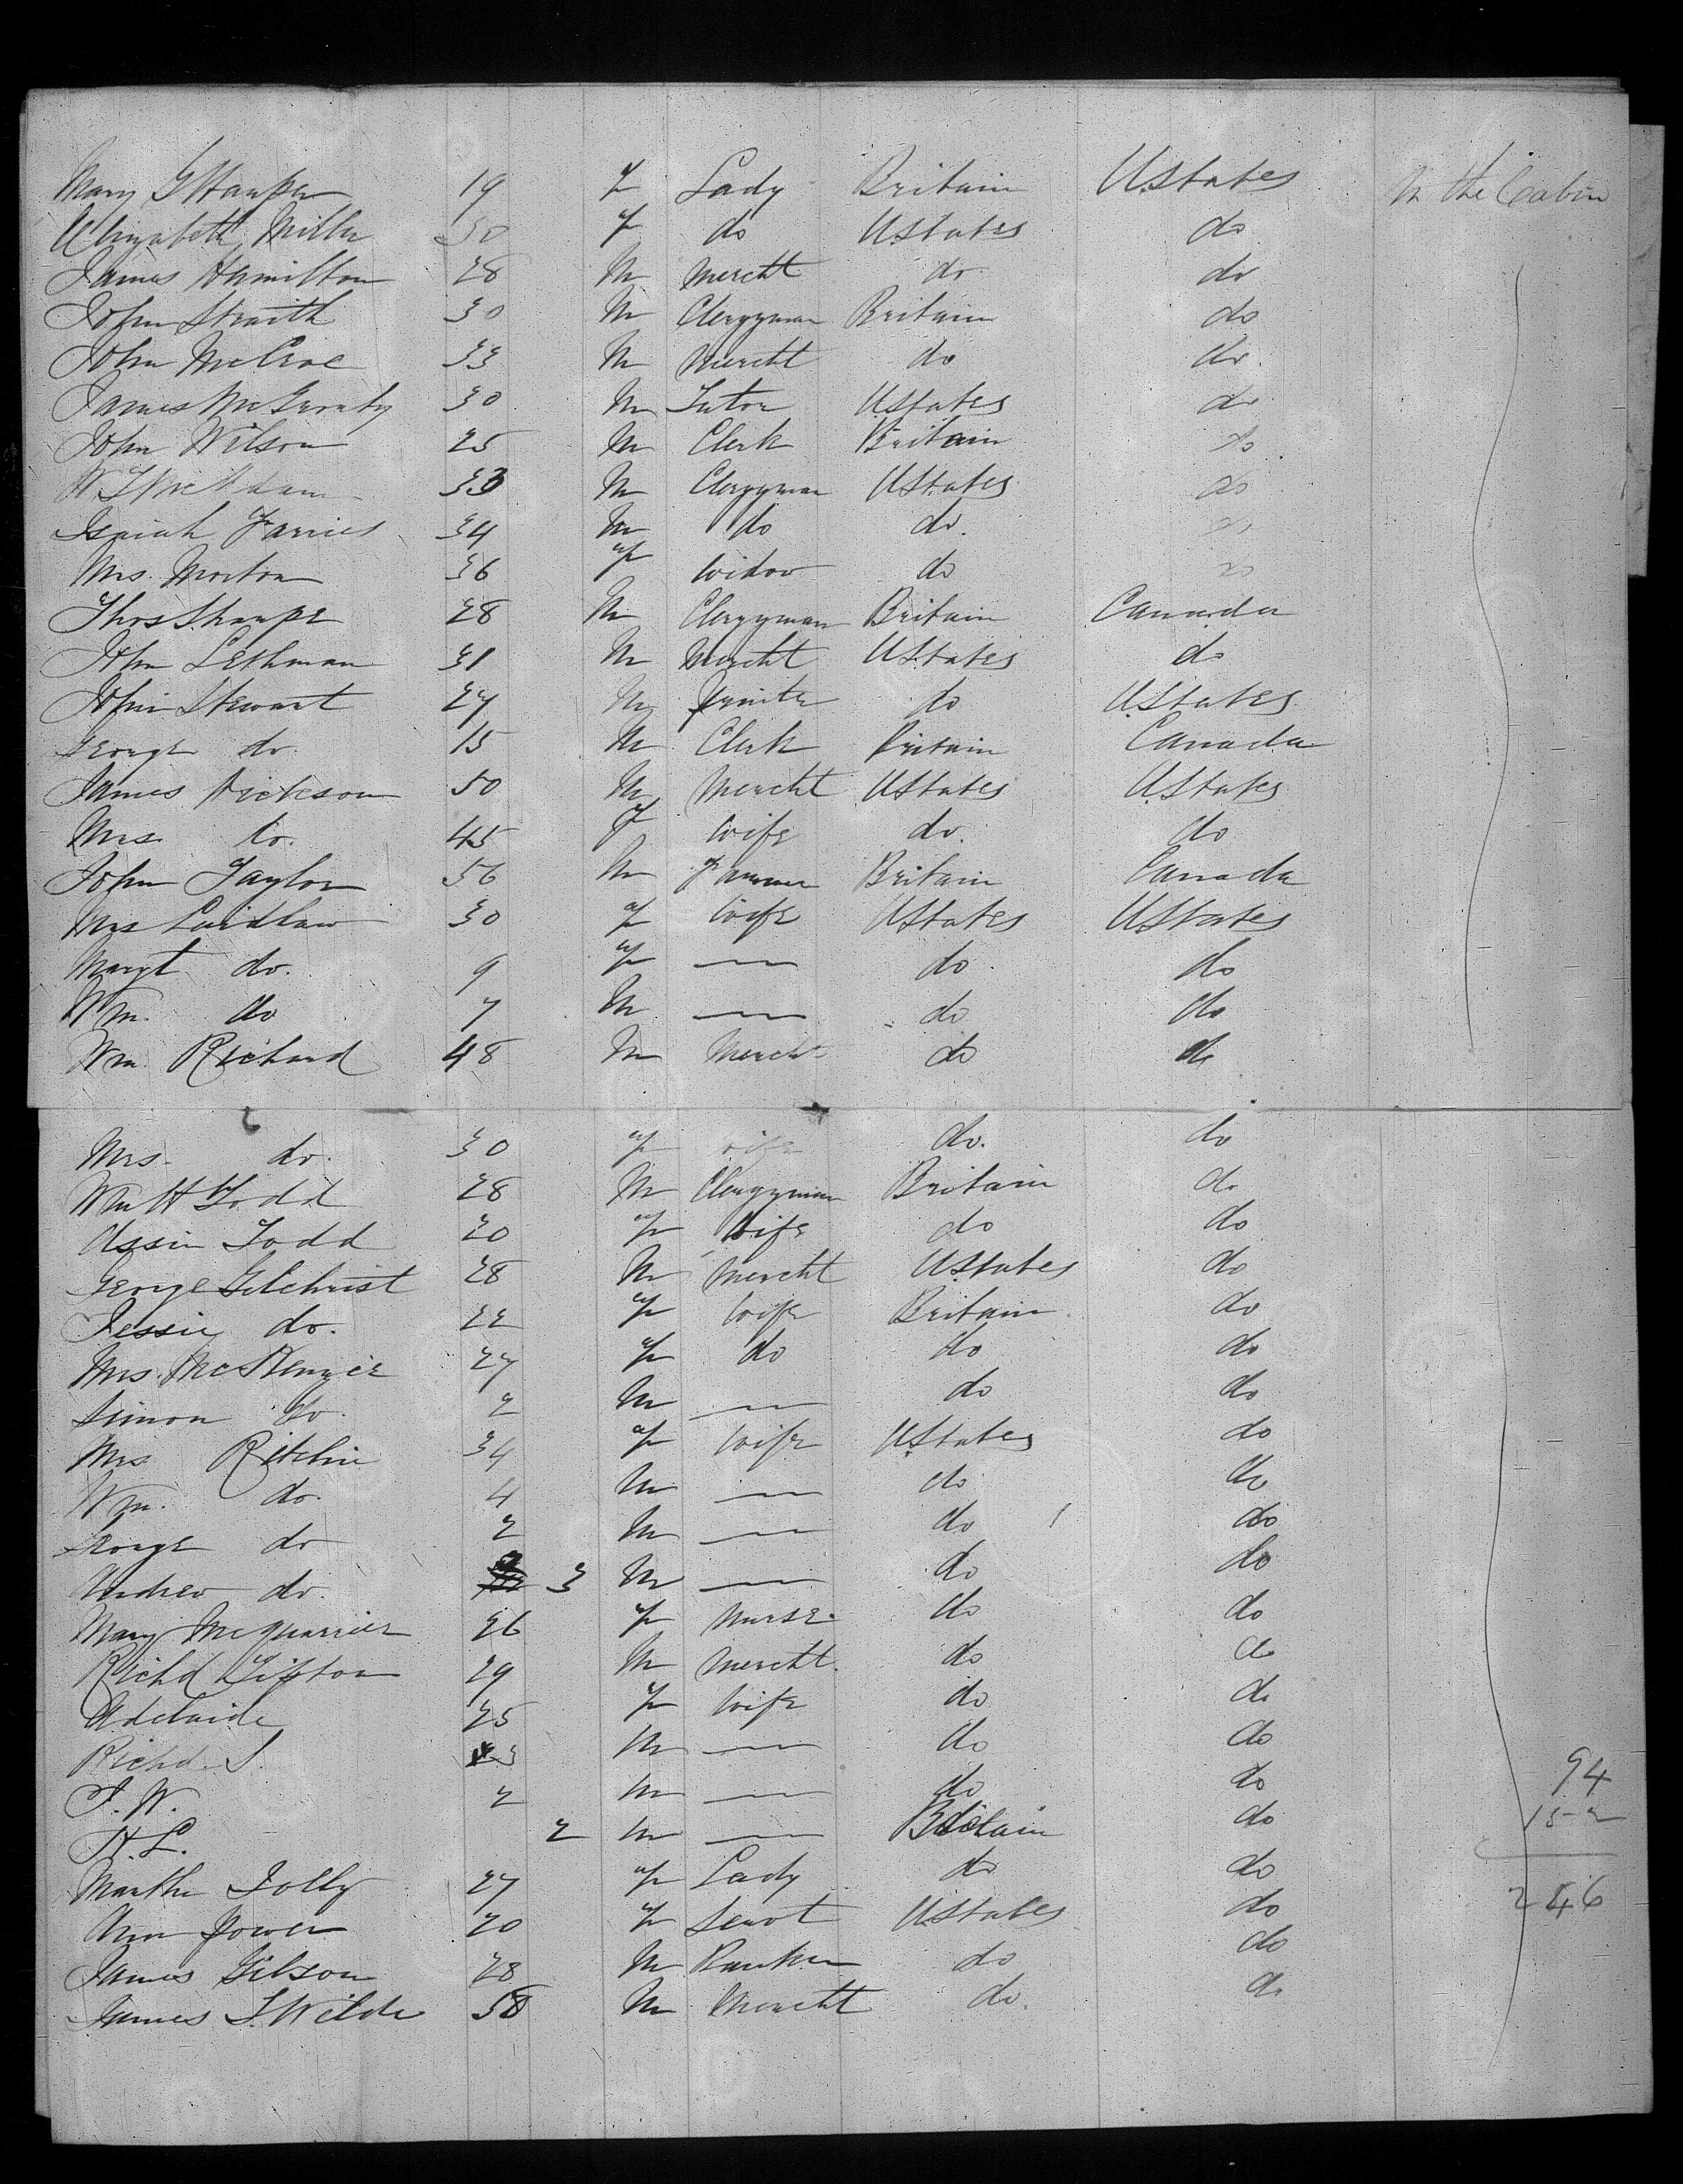 Mary G Harper 19 F Lady Britain UStates In the Cabin
Elizabeth Miller 50 F do UStates do
James Hamilton 28 M Mercht do do
John Straith 30 M Clergyman Britain do
John McCrae 33 M Mercht do do
James McGinnty 30 M Tutor UStates do
John Wilson 25 M Clerk Britain do
33 M Clergyman UStates do
Isaiah Farries 34 M do do. do
Mrs. Morton 36 F Widow do do
Thos Sharpe 28 M Clergyman Britain Canada
John Lethman 31 M Mercht UStates do
John Stewart 27 M do UStates
George do. 15 M Clerk Britain Canada
James Dickson 50 M Mercht UStates UStates
Mrs Do. 45 F Wife do. do
John Taylor 56 M Farmer Britain Canada
Mrs Laidlaw 30 F Wife UStates UStates
Margt do. 9 F — do. do
Wm. do 7 M — do do
Wm. Richard 48 M Mercht do do
Mrs. do. 30 F Wife do. do
Wm H Todd 28 M Clergyman Britain do
Todd 20 F Wife do do
George Gilchrist 28 M Mercht UStates do
Jessie do. 22 F Wife Britain do
Mrs. McKenzie 27 F do do do
Simon Do. 2 M — do do
Mrs Ritchie 34 F Wife UStates do
Wm. do. 4 M — do do
George do 2 M — do do
Andrew do. 3 M — do do
Mary McQuarrier 26 F Nurse do do
Richd Tipton 29 M Mercht. do do
Adelaide 25 F Wife do do
Richd. S. 3 M — do do
J. W. 2 M — do do 94
H. L. 2 M — Britain do 152
Martha Jolly 27 F Lady do do
Ann Power 20 F Servt UStates do 246
James Gibson 28 M Banker do do
James T. Wilde 58 M Mercht do. do